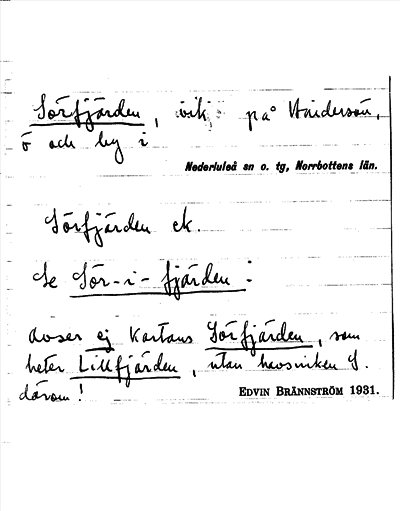 Sörfjärden, vik på Hindersön,
ö och by i
Nederluleå sn o. tg, Norrbottens län.
Sörfjärden ek.
Se Sör-i-fjärden:
avser ej kartans Sörfjärden, som
heter Lillfjärden, utan havsviken S.
därom!
EDVIN BRÄNNSTRÖM 1931.